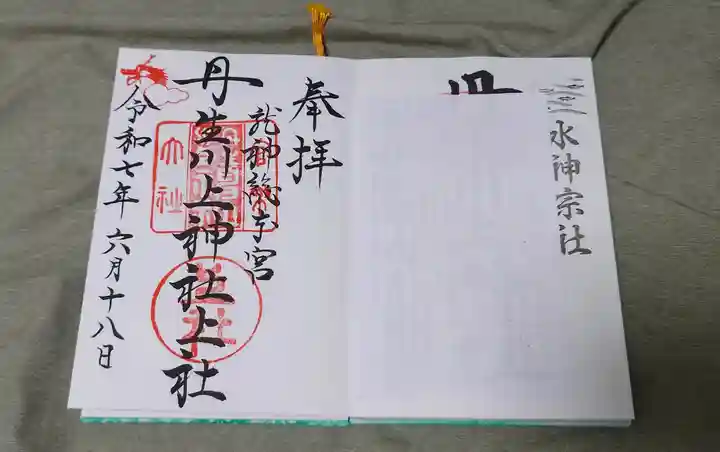 水神宗社
奉拝
龍神總本宮
丹生川上神社上社
令和七年六月十八日
大社